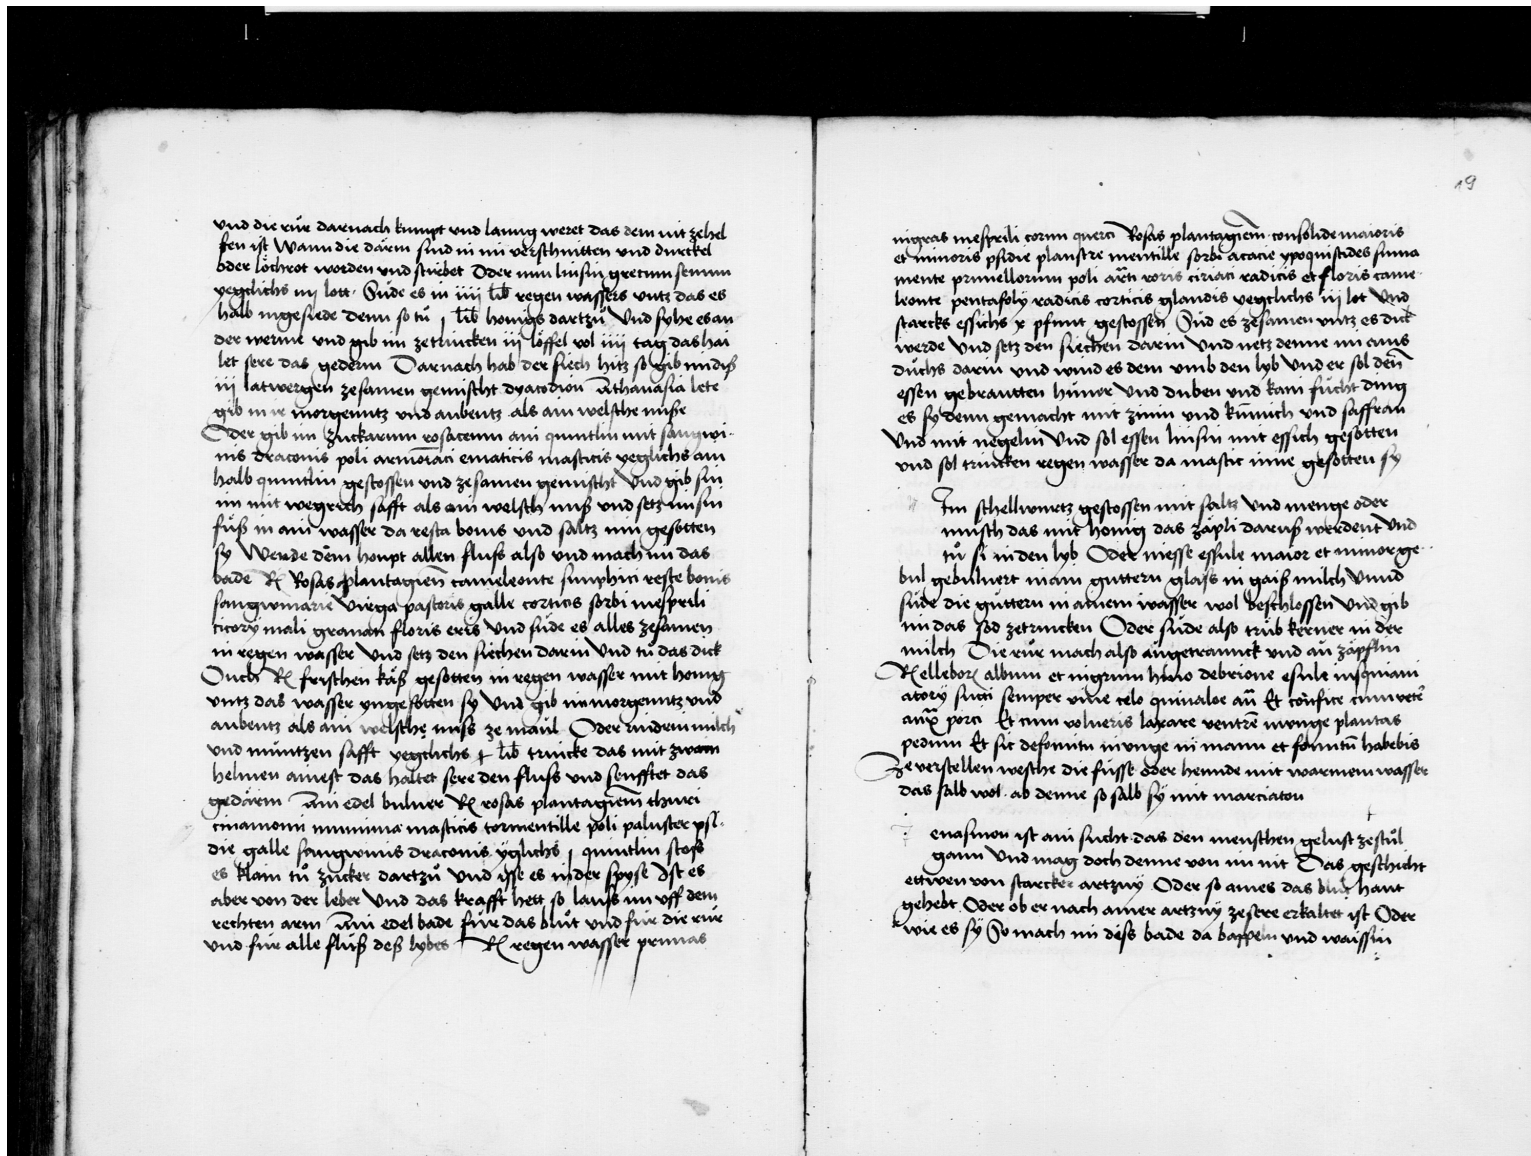 und die růr darnach kumpt und lanng weret das dem nit zehel
fen ist Wann die därm sind in im verschnitten und durckel
oder löchrot worden und stirbet Oder nim linsin grecum semen
yegclichs iiij lott Sůde es in iiii lib regen wassers untz das es
halb ingesiede denn so tů j lib honigs dartzů Und syhe es an
der werme und gib im zetrincken iij löffel vol iiij tag das hai
let sere das gederm Darnach hab der siech hitz so gib im diß
iij latwergen zesamen gemischt dyacodion Athanasia lete
gib im ir morgenntz und aubentz als ain welsche nuße
Oder gib im zuckarum rosaceum ain quintlin mit sangwi
nis draconis poli armoniaci ematicis masticis yeglichs ain
halb quintlin gestossen und zesamen gemischt Und gib sin
im mit wegrich safft als ain welsch nuß und setz im sin
fůß in ain wasser da resta bonis und saltz inn gesotten
sy Werde dem houpt allen fluß also und mach im das
bade R Rosas plantagien cameleonte sinphiti reste bonis
sangwinarie Virga pastoris galle corticis sorbi mespili
citory mali granati floris eris Und sude es alles zesamen
in regen wasser Und setz den siechen darin Und tů das dick
Ouch R frischen käß gesotten in regen wasser mit honig
untz das wasser yngesotten sy Und gib im morgenntz und
aubentz als ain welsche nuss ze maul Oder rindern milch
und müntzen safft yegclichs j lib trincke das mit zwain
helmen amest das haltet sere den fluss und senfftet das
gedärm Ain edel bulver R rosas plantagiem thuri
cinamomi mumina masticis tormentille poli paluster psi
die galle sangwinis draconis yglichs j quintlin stoss
es klain tů zucker dartzů Und isse es in der spyse Ist es
aber von der leber Und das krafft hett so lauss im uff dem
rechten arm Ain edel bade fůr das blůt und fůr die růr
und fur alle flüß deß lybes R regen wasser prunas
19
nigras mespili corun querci Rosas plantagiem consolide maioris
et minoris psidie plaustre mentille sorbi acacie ypoquistides suma
mente prunellorum poli areti roris ciriaci radicis et floris came
leonte pentafoly radicis corticis glandis yegclichs iij lot Und
starcks essichs x pfunt gestossen Sud es zesamen untz es dick
werde Und setz den siechen darin Und netz denne im ains
důchs darin und wind es dem umb den lyb Und er sol denn
essen gebrautten hůner Und duben und kain fücht ding
es sy denn gemacht mit zimin und kümich und saffran
Und mit negelin Und sol essen linsin mit essich gesotten
und sol trincken regen wasser da mastic inne gesotten sy
Im schellwurtz gestossen mit saltz Und menge oder
misch das mit honig das zäpli daruß werdent Und
tů si in den lyb Oder messe essule maior et minor ge
bul gebulvert in ain guttern glass in gaiß milch Unnd
süde die guttern in ainem wasser wol beschlossen Und gib
im das sod zetrincken Oder sůde also trüb kerner in der
milch Die růr mach also an getranck und an zäpflin
R ellebory album et nigrum hirio debrione esule insquiam
atory succi semper vive celo quinaloe an Et confice cum vete
anx porci Et cum volueris laxare ventre inunge plantas
pedum Et sic defomitu inunge in manu et fomitu habebis
Ze verstellen wesche die füsse oder hennde mit warmem wasser
das salb wol ab denne so salb sy mit marciaton
enasmon ist ain sucht das den menschen gelust zestůl
gann Und mag doch denne von im nit Das geschicht
ettwen von starcker artzny Oder so aines das blůt haut
gehebt Oder ob er nach ainer artzny zesere erkaltet ist Oder
wie es sy So mach im dess bade da bappeln und waissin